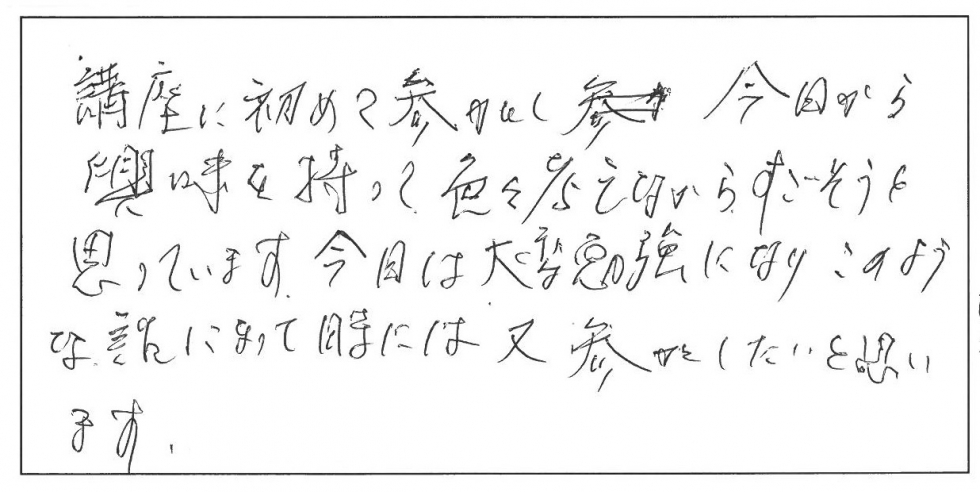 講座に初めて参加して 今日から
興味を持って色々考えながらすごそうと
思っています。今日は大変勉強になり このよう
な話にあって時には又参加したいと思い
ます.